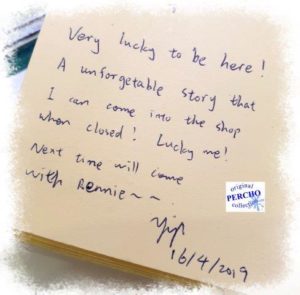 Very lucky to be here!
A unforgetable story that
I can come into the shop
when closed! Lucky me!
Next time will come
with Rennie~~
16/4/2019
original
PERCHO
collection